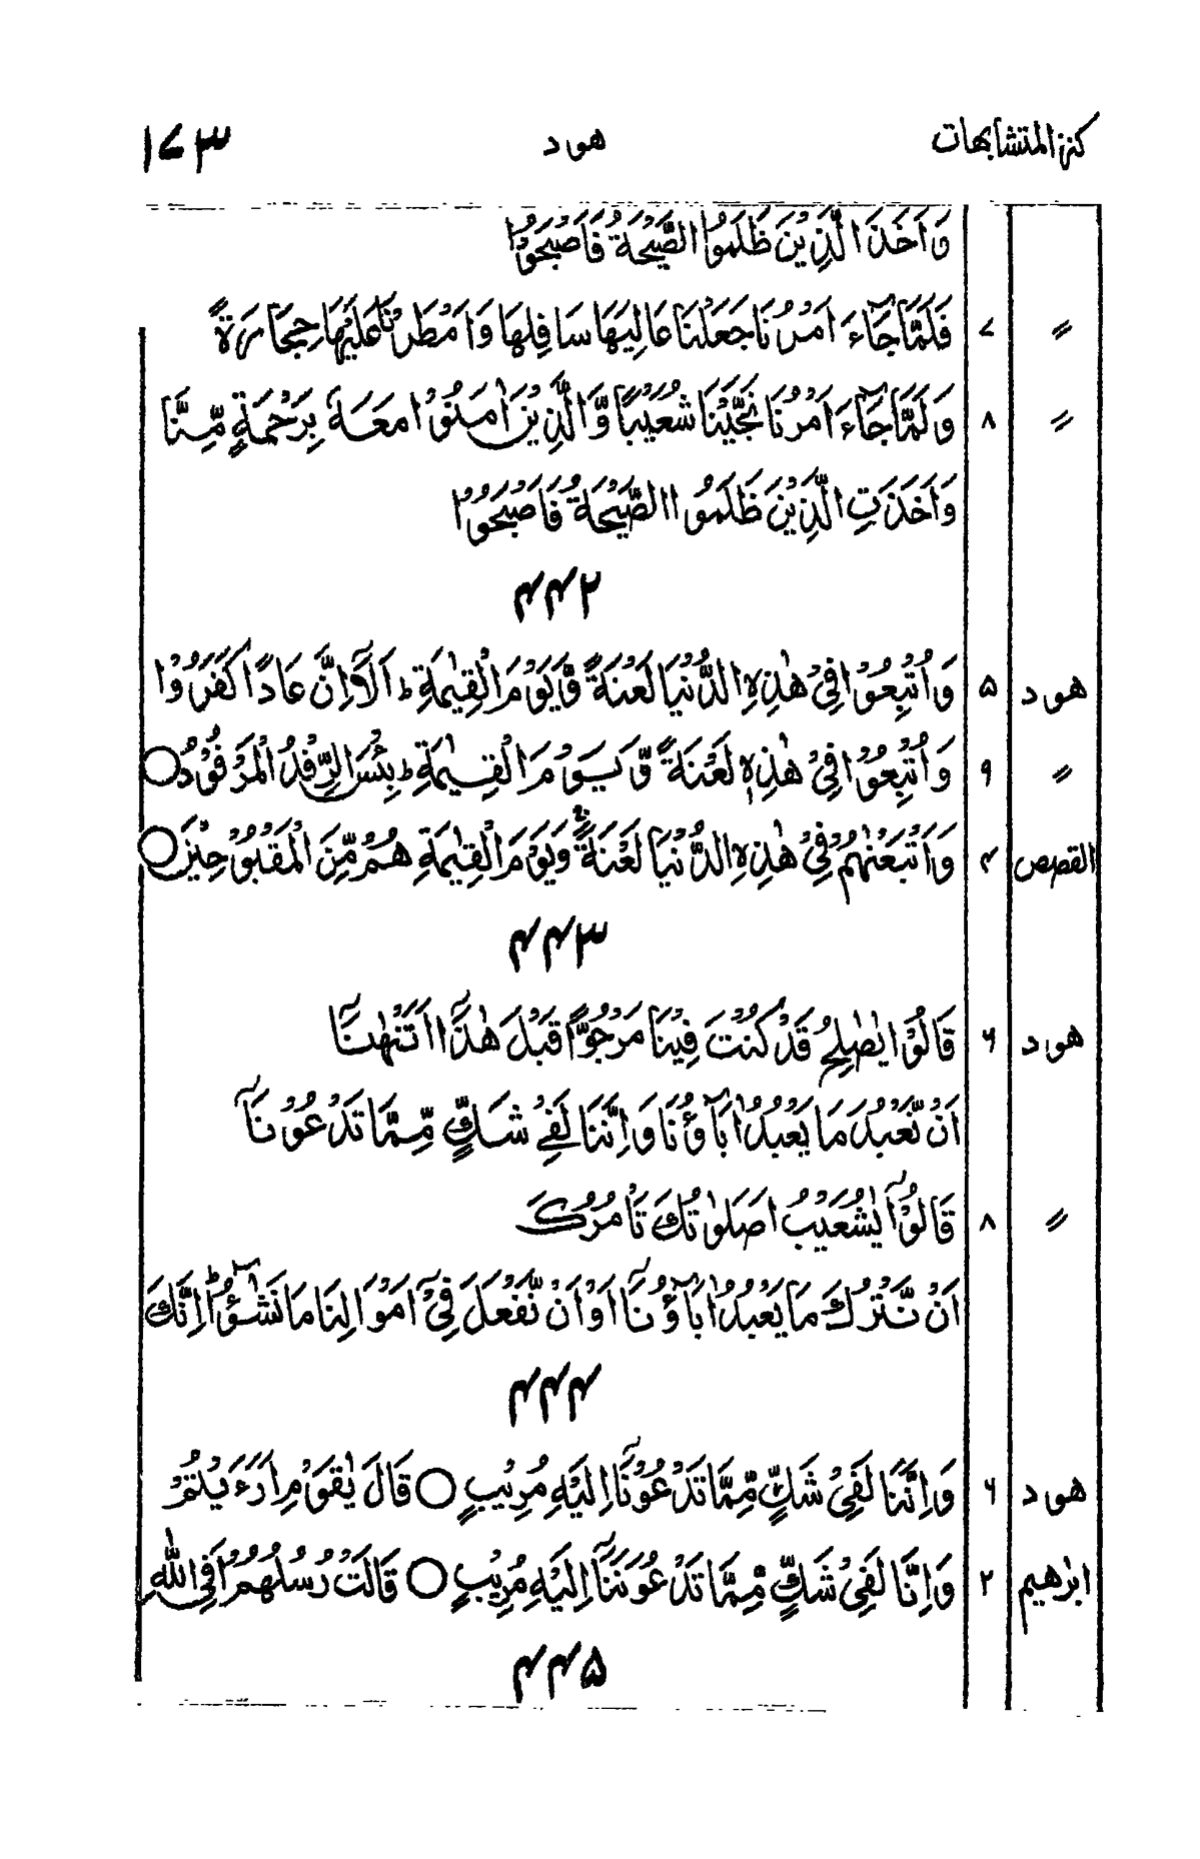 كنز المتشابهات هود ۱۷۳
وَاَخَذَ الَّذِيْنَ ظَلَمُوا الصَّيْحَةُ فَاَصْبَحُوْا
〃 ۷ فَلَمَّا جَآءَ اَمْرُنَا جَعَلْنَا عَالِيَهَا سَافِلَهَا وَاَمْطَرْنَا عَلَيْهَا حِجَارَةً
〃 ۸ وَلَمَّا جَآءَ اَمْرُنَا نَجَّيْنَا شُعَيْبًا وَّالَّذِيْنَ اٰمَنُوْا مَعَهٗ بِرَحْمَةٍ مِّنَّا
وَاَخَذَتِ الَّذِيْنَ ظَلَمُوا الصَّيْحَةُ فَاَصْبَحُوْا
۴۴۲
هود ۵ وَاُتْبِعُوْا فِيْ هٰذِهِ الدُّنْيَا لَعْنَةً وَّيَوْمَ الْقِيٰمَةِ ؕ اَلَآ اِنَّ عَادًا كَفَرُوْا
〃 ۹ وَاُتْبِعُوْا فِيْ هٰذِهٖ لَعْنَةً وَّيَوْمَ الْقِيٰمَةِ ؕ بِئْسَ الرِّفْدُ الْمَرْفُوْدُ ○
القصص ۴ وَاَتْبَعْنٰهُمْ فِيْ هٰذِهِ الدُّنْيَا لَعْنَةً ۚ وَيَوْمَ الْقِيٰمَةِ هُمْ مِّنَ الْمَقْبُوْحِيْنَ ○
۴۴۳
هود ۶ قَالُوْا يٰصٰلِحُ قَدْ كُنْتَ فِيْنَا مَرْجُوًّا قَبْلَ هٰذَآ اَتَنْهٰىنَآ
اَنْ نَّعْبُدَ مَا يَعْبُدُ اٰبَآؤُنَا وَاِنَّنَا لَفِيْ شَكٍّ مِّمَّا تَدْعُوْنَآ
〃 ۸ قَالُوْا يٰشُعَيْبُ اَصَلٰوتُكَ تَاْمُرُكَ
اَنْ نَّتْرُكَ مَا يَعْبُدُ اٰبَآؤُنَآ اَوْ اَنْ نَّفْعَلَ فِيْٓ اَمْوَالِنَا مَا نَشٰٓؤُا ؕ اِنَّكَ
۴۴۴
هود ۶ وَاِنَّنَا لَفِيْ شَكٍّ مِّمَّا تَدْعُوْنَآ اِلَيْهِ مُرِيْبٍ ○ قَالَ يٰقَوْمِ اَرَءَيْتُمْ
ابرٰهيم ۲ وَاِنَّا لَفِيْ شَكٍّ مِّمَّا تَدْعُوْنَنَآ اِلَيْهِ مُرِيْبٍ ○ قَالَتْ رُسُلُهُمْ اَفِي اللّٰهِ
۴۴۵